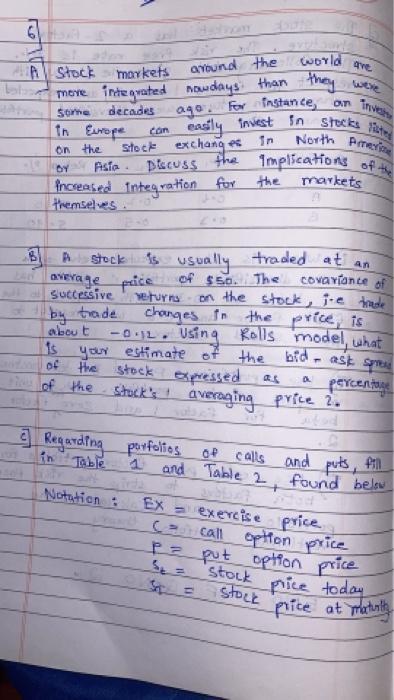 6]
A] Stock markets around the world are
more integrated nowdays than they were
some decades ago. For instance, an investor
in Europe can easily invest in stocks listed
on the stock exchanges in North America
or Asia. Discuss the implications of the
increased integration for the markets
themselves.
B] A stock is usually traded at an
average price of $50. The covariance of
successive returns on the stock, i.e trade
by trade changes in the price, is
about -0.12. Using Rolls model, what
is your estimate of the bid-ask spread
of the stock expressed as a percentage
of the stock's averaging price ?.
C] Regarding porfolios of calls and puts, fill
in Table 1 and Table 2, found below
Notation : EX = exercise price
C = call option price
P = put option price
St = stock price today
ST = stock price at maturity